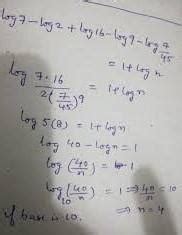 log 7 - log 2 + log 16 - log 9 - log 7/45
= 1 + log n
log 7·16 / 2(7/45)9 = 1 + log n
log 5(8) = 1 + log n
log 40 - log n = 1
log (40/n) = 1
log₁₀ (40/n) = 1 ⇒ 40/n = 10
if base is 10. ⇒ n = 4